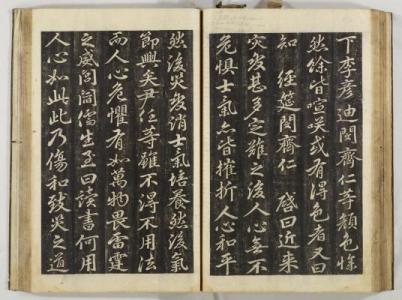 下李彦迪閔齊仁等顔色慘
然餘皆喧笑或有得色者又曰
知 經筵閔齊仁 啓曰近来
灾變甚多定難之後人心無不
危惧士氣亦皆摧折人心和平
然後灾變消士氣培養然後氣
節興矣尹任等雖不得不用法
而人心危懼有如萬物畏雷霆
之威閭閻儒生至曰讀書何用
人心如此此乃傷和致灾之道